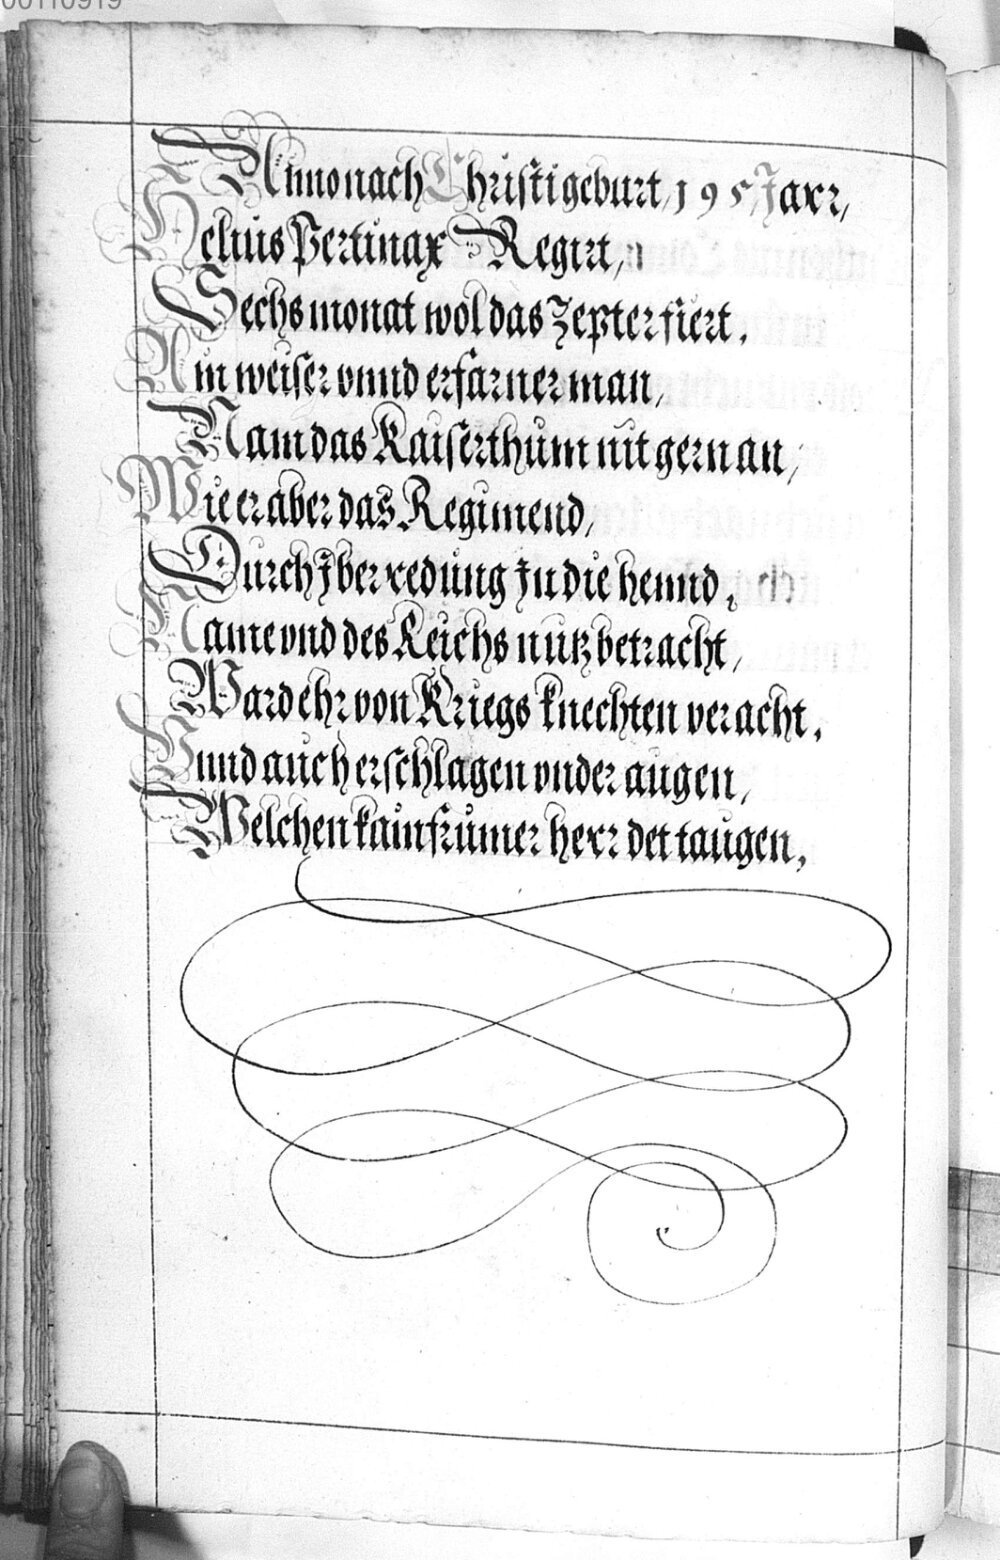 00110919
Anno nach Christi geburt, 195, Jarr,
Helius Pertinax Regirt,
Sechs monat wol das Zepter fiert.
Ain weiser vnnd erfarner man,
Nam das Kaiserthum nit gern an,
Wie er aber das Regimend,
Durch Jber redung Jn die hennd,
Name vnd des Reichs nutz betracht,
Ward ehr von Kriegs knechten veracht.
Vnnd auch erschlagen vnder augen,
Welchen kain frumer herr det taugen.